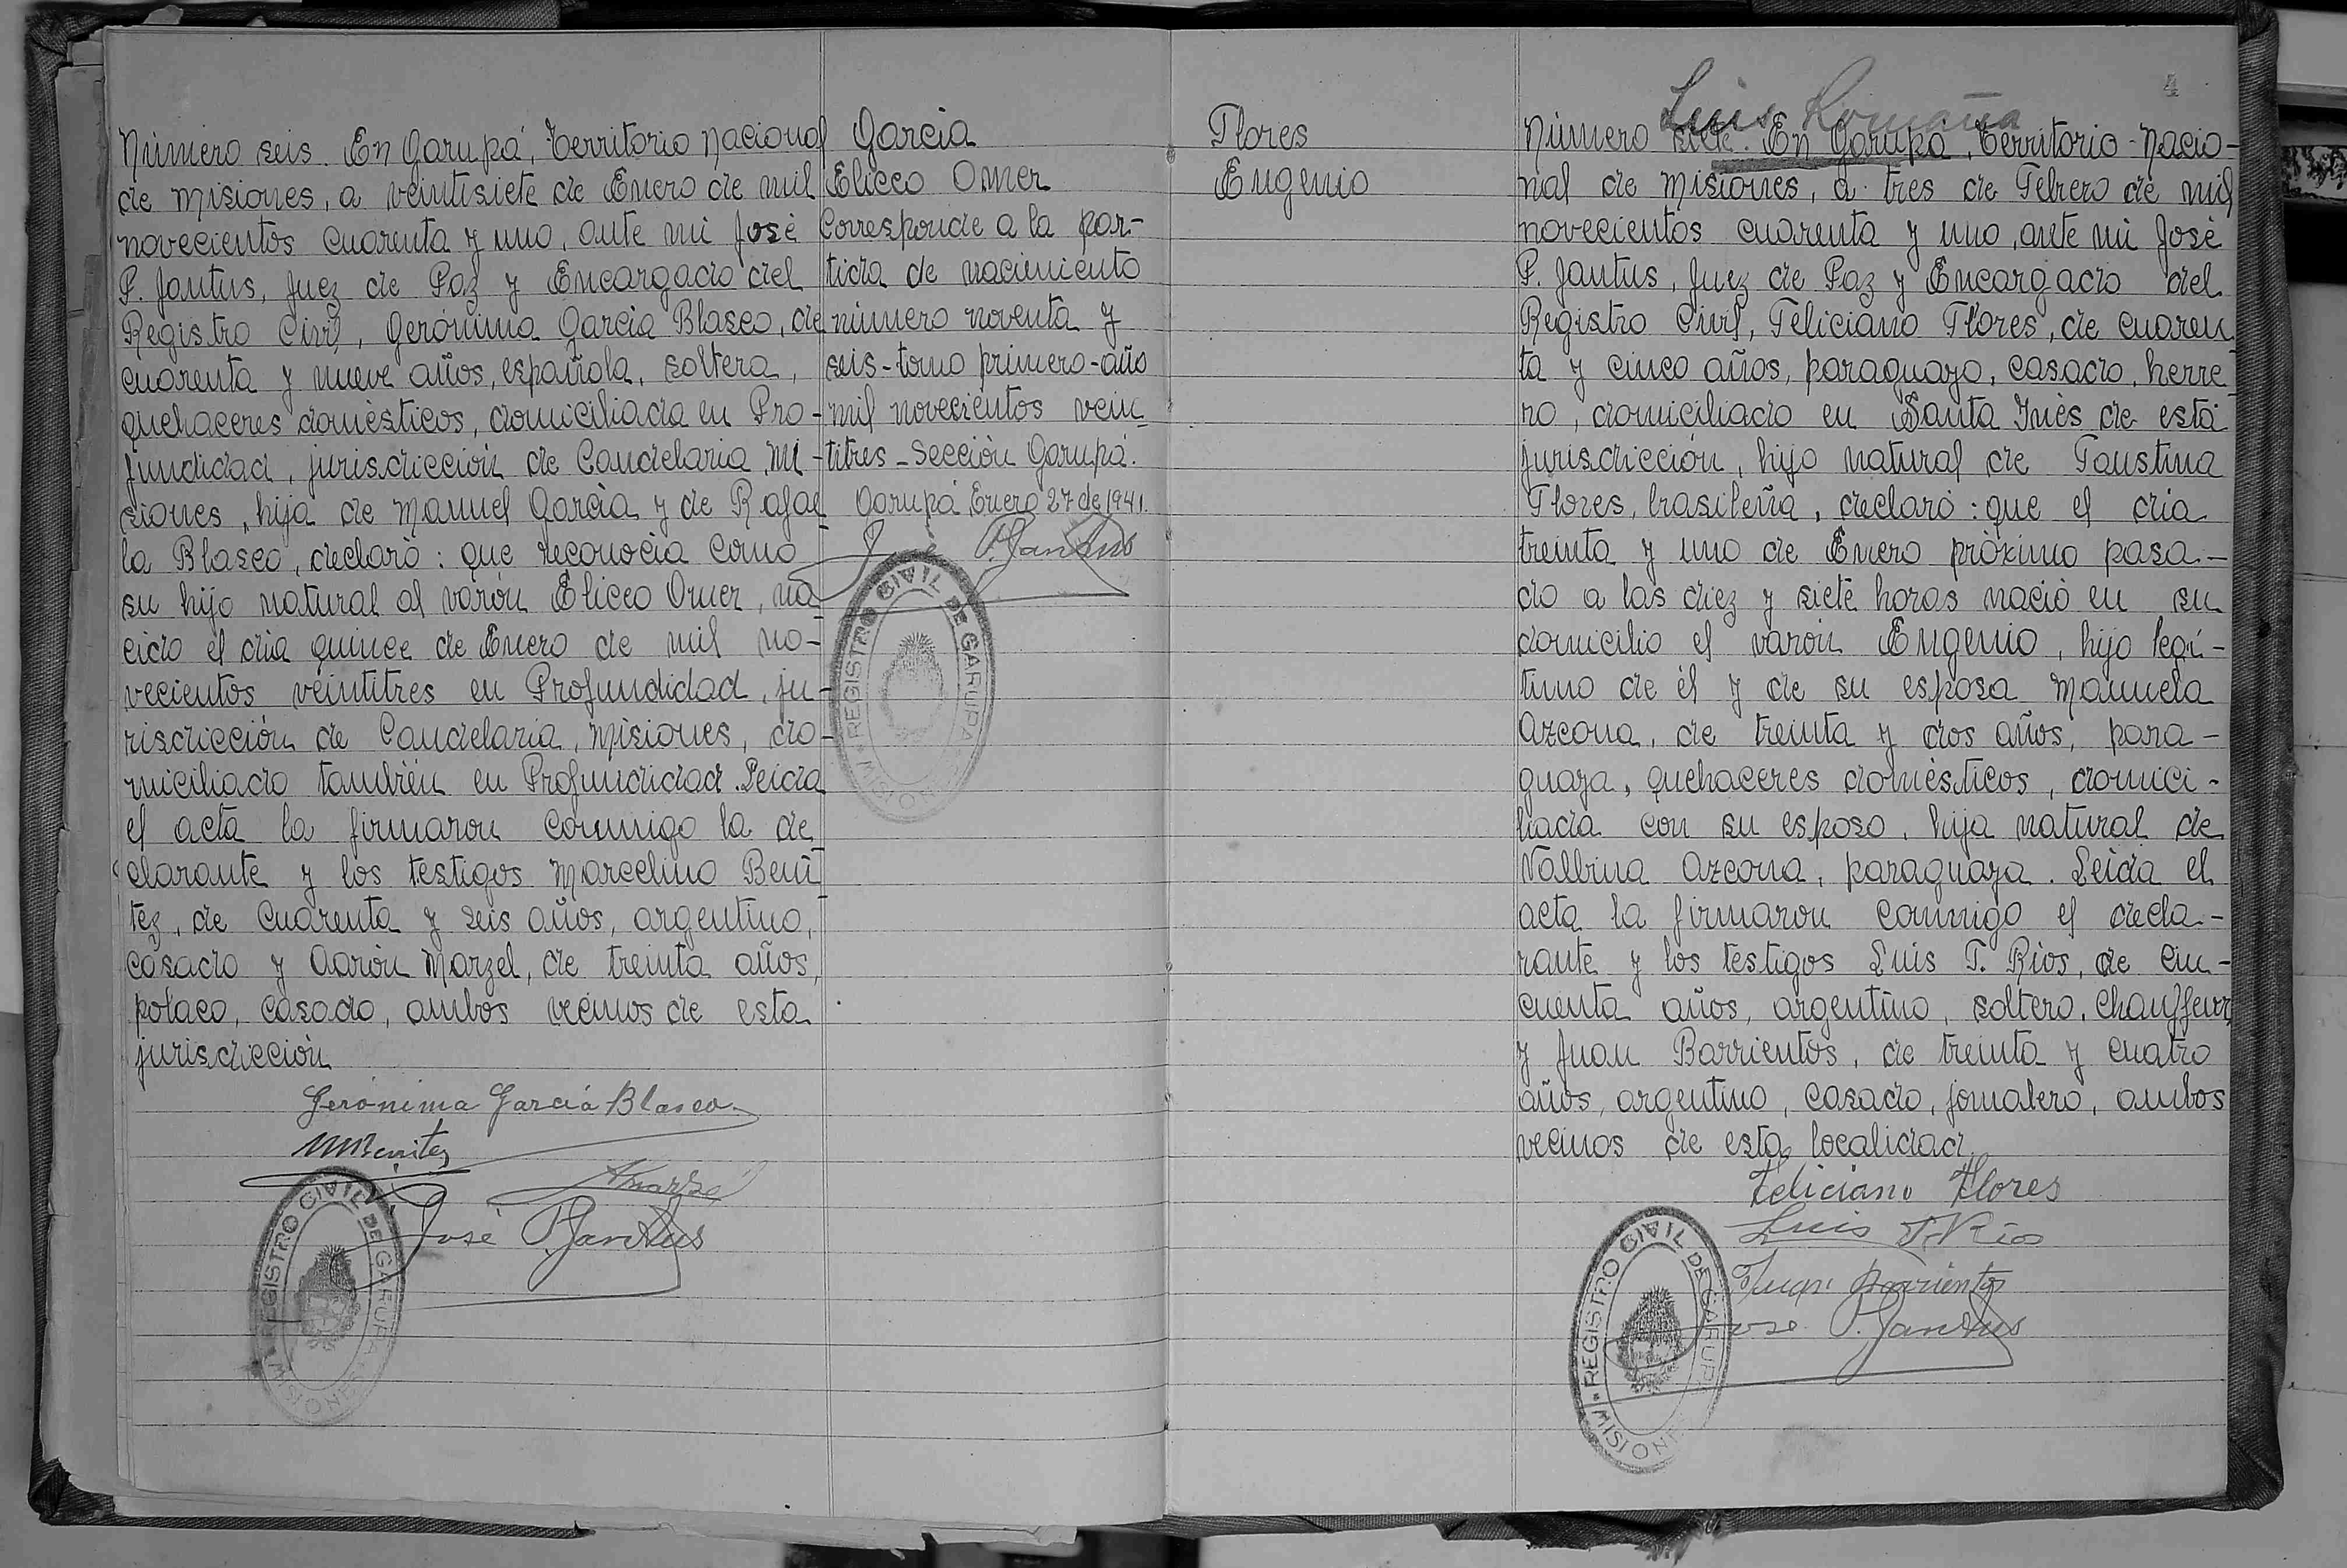 Número seis. En Garupá, Territorio Nacional
de Misiones, a veintisiete de Enero de mil
novecientos cuarenta y uno, ante mi José
P. Jantus, Juez de Paz y Encargado del
Registro Civil, Gerónima García Blasco, de
cuarenta y nueve años, española, soltera,
quehaceres domésticos, domiciliada en Pro-
fundidad, jurisdicción de Candelaria, Mi-
siones, hija de Manuel García y de Rafae
la Blasco, declaró: que reconocía como
su hijo natural al varón Eliceo Omer, na
cido el día quince de Enero de mil no-
vecientos veintitres en Profundidad, ju-
risdicción de Candelaria, Misiones, do-
miciliado también en Profundidad. Leida
el acta la firmaron conmigo la de
clarante y los testigos Marcelino Bení
tez, de cuarenta y seis años, argentino,
casado y Aarón Marzel, de treinta años,
polaco, casado, ambos vecinos de esta
jurisdicción
Gerónima García Blasco
MBenitez
AMarzel
José P. Jantus
REGISTRO CIVIL DE GARUPA MISIONES
García
Eliceo Omer
Corresponde a la par-
tida de nacimiento
número noventa y
seis - tomo primero - año
mil novecientos vein
titres - Sección Garupá.
Garupá Enero 27 de 1941.
José P. Jantus
REGISTRO CIVIL DE GARUPA MISIONES
Flores
Eugenio
4
Luis Romaña
Número siete. En Garupá, Territorio - Nacio-
nal de Misiones, a tres de Febrero de mil
novecientos cuarenta y uno, ante mi José
P. Jantus, Juez de Paz y Encargado del
Registro Civil, Feliciano Flores, de cuaren
ta y cinco años, paraguayo, casado, herre
ro, domiciliado en Santa Inés de esta
jurisdicción, hijo natural de Faustina
Flores, brasileña, declaró: que el día
treinta y uno de Enero próximo pasa-
do a las diez y siete horas nació en su
domicilio el varón Eugenio, hijo legí-
timo de él y de su esposa Manuela
Azcona, de treinta y dos años, para-
guaya, quehaceres domésticos, domici-
liada con su esposo, hija natural de
Valbina Azcona, paraguaya. Leída el
acta la firmaron conmigo el decla-
rante y los testigos Luis T. Rios, de cin-
cuenta años, argentino, soltero, chauffeur
y Juan Barrientos, de treinta y cuatro
años, argentino, casado, jornalero, ambos
vecinos de esta localidad.
Feliciano Flores
Luis T. Rios
Juan Barrientos
José P. Jantus
REGISTRO CIVIL DE GARUPA MISIONES